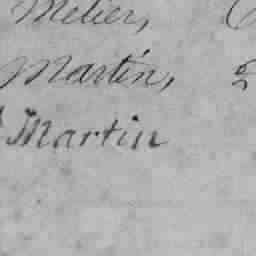 Melier,
Martin,
Martin